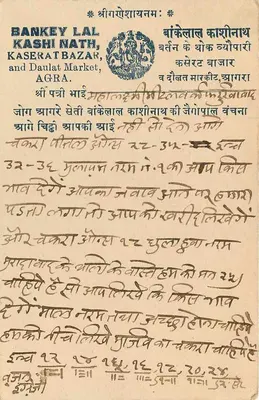 ★ श्रीगणेशायनमः ★
BANKEY LAL
KASHI NATH,
KASERAT BAZAR,
and Daulat Market,
AGRA.
बांकेलाल काशीनाथ
बर्तन के थोक व्यौपारी
कसेरट बाजार
व दौलत मारकीट, आगरा
श्री पत्री भाई
जोग आगरे सेती बांकेलाल काशीनाथ की जैगोपाल बंचना
आगे चिट्ठी आपकी आई नहीं सो देना आगे
चकरा पीतल औन्स २८-३५ इन्च
३२-३६ मुलायम नरम नं १ का आप किस
भाव देगें आपका जवाब आने पर हमारा
पड़ता लगा तो आपको खरीदी लिखेंगें
और चकरा औन्स १८ मुलायम नरम
मुरादाबाद के वास्ते हमको माल
चाहिये है सो आप लिखें कि किस भाव
देगें माल नरम तथा अच्छा होना चाहिये
हमको नीचे लिखे माफिक चकरा चाहिये हैं
इन्च १२ १४ १६ १८ २० २४